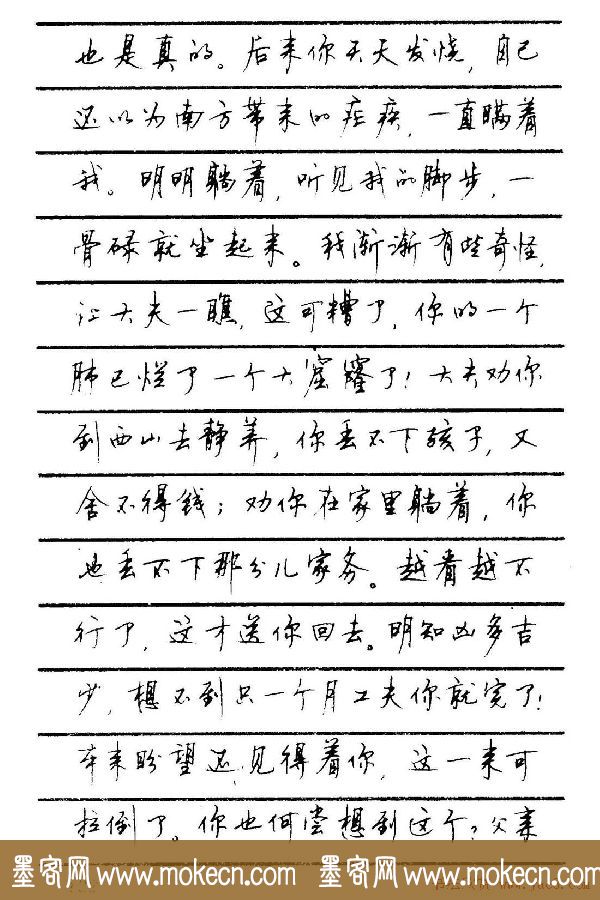 也是真的。后来你天天发烧，自己
还以为南方带来的疟疾，一直瞒着
我。明明躺着，听见我的脚步，一
骨碌就坐起来。我渐渐有些奇怪，
让大夫一瞧，这可糟了，你的一个
肺已烂了一个大窟窿了！大夫劝你
到西山去静养，你丢不下孩子，又
舍不得钱；劝你在家里躺着，你
也丢不下那分儿家务。越看越不
行了，这才送你回去。明知凶多吉
少，想不到只一个月工夫你就完了！
本来盼望还见得着你，这一来可
拉倒了。你也何尝想到这个？父亲
墨客网 www.mokecn.com 墨客网 www.mokecn.com